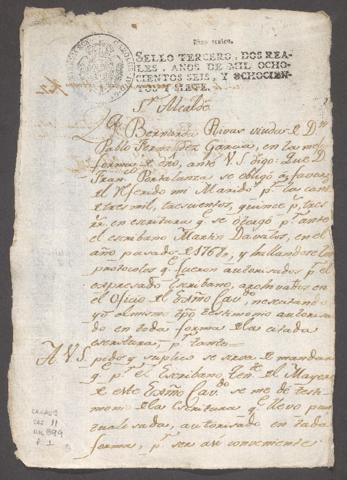 SELLO TERCERO, DOS REA-
LES, AÑOS DE MIL OCHO-
CIENTOS SEIS, Y OCHOCIEN-
TOS Y SIETE.
Sr Alcalde
Da Bernarda Rivas viuda de Dn
Pablo Fernandez Garcia, en la mejor
forma de dro, ante VS digo: Que Dn
Franco Portalanza se obligó a favor
el referido mi Marido pr la cant
tres mil, trescientos, quince ps, tres
rs, en escritura q se otorgó pr ante
el escribano Martin Davalos, en el
año pasado de 1767
protocolos q fueron autorisados pr el
expresado Escribano, archivados en
el Oficio el Exmo Cavdo, necesitando
yo al mismo tpo testimonio autorisado
en toda forma de la citada
escritura; pr tanto
A VS pido y suplico se sirva de mandar
q pr el Escribano Tente el Mayor
de este Exmo Cavdo se me de testi-
monio de la Escritura q llevo pun-
tualisada, autorisado en toda
forma, pr ser asi conveniente